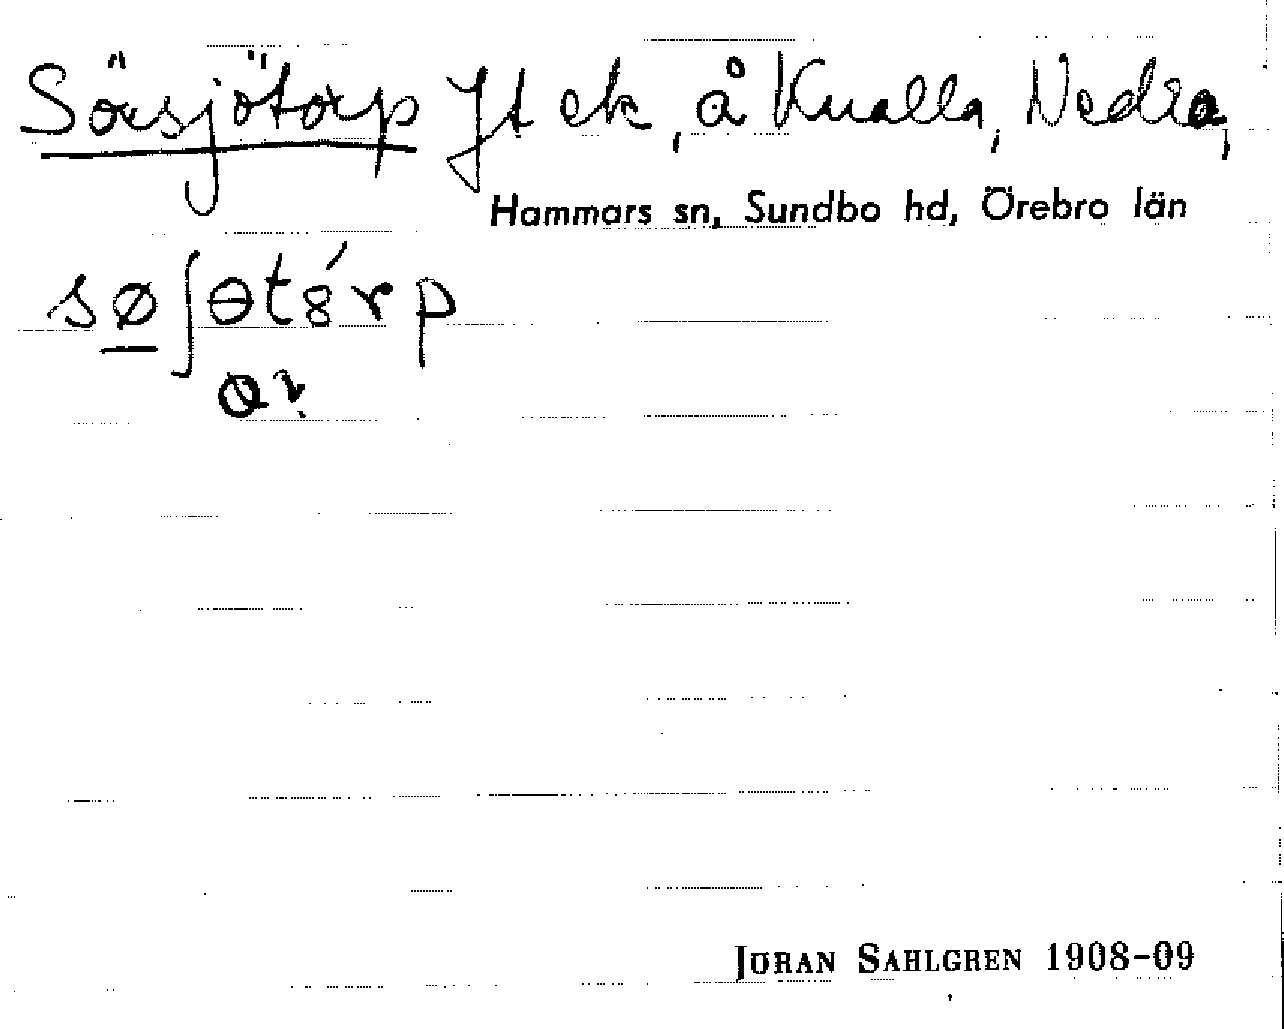 Sörsjötorp Jt ek, å Knalla, Nedra,
Hammars sn, Sundbo hd, Örebro län
søʃɵtȣ́rp
JÖRAN SAHLGREN 1908-09